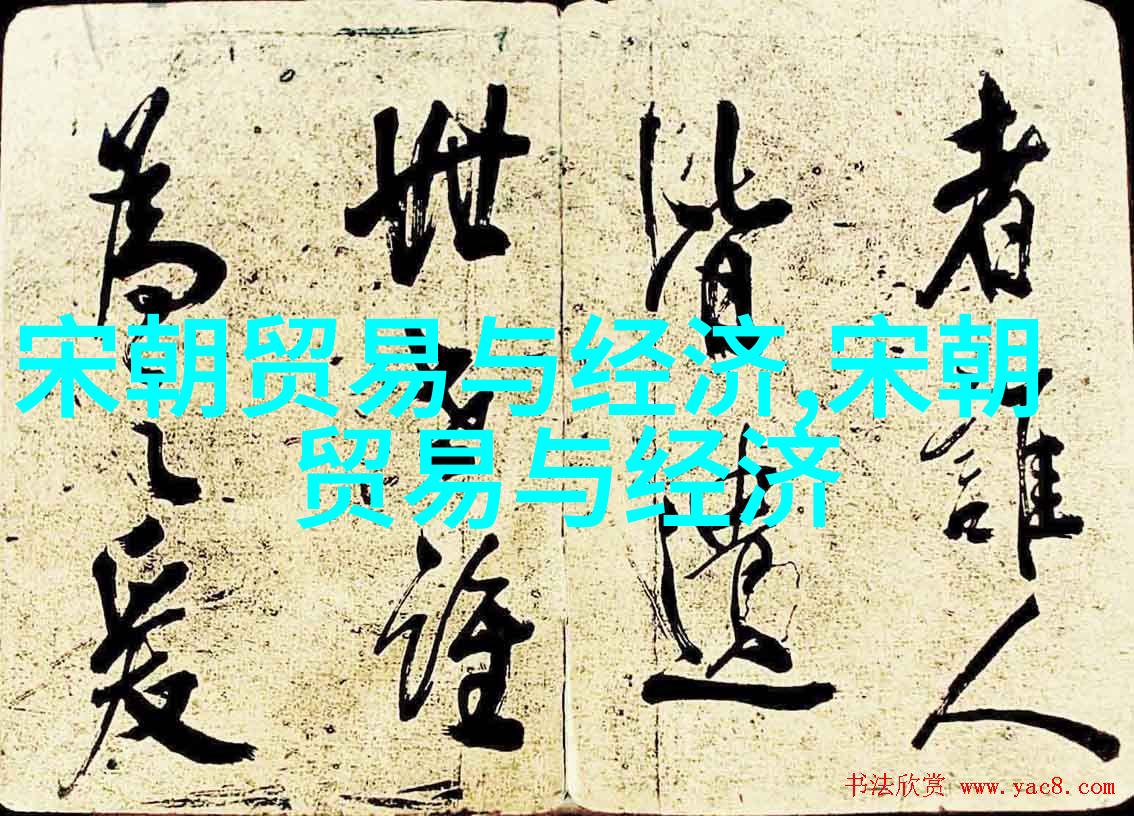 者誰人
皆遺
世誰
為之爰
宋朝贸易与经济,宋朝
贸易与经济
书法欣赏 www.yac8.com